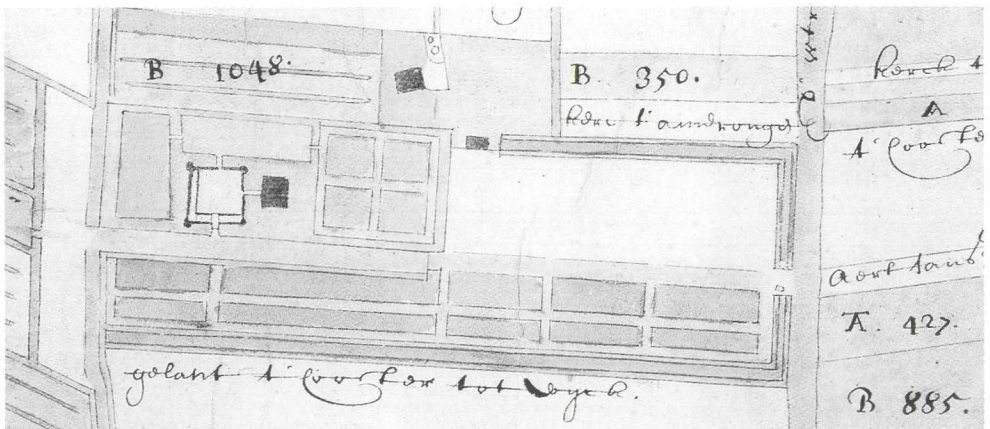 B 1048.
B. 350.
kerc t'amerongē
kerck t
A
t' Cooster
Aert Jans
A. 427.
B 885.
gelant t' Cooster tot wyck.